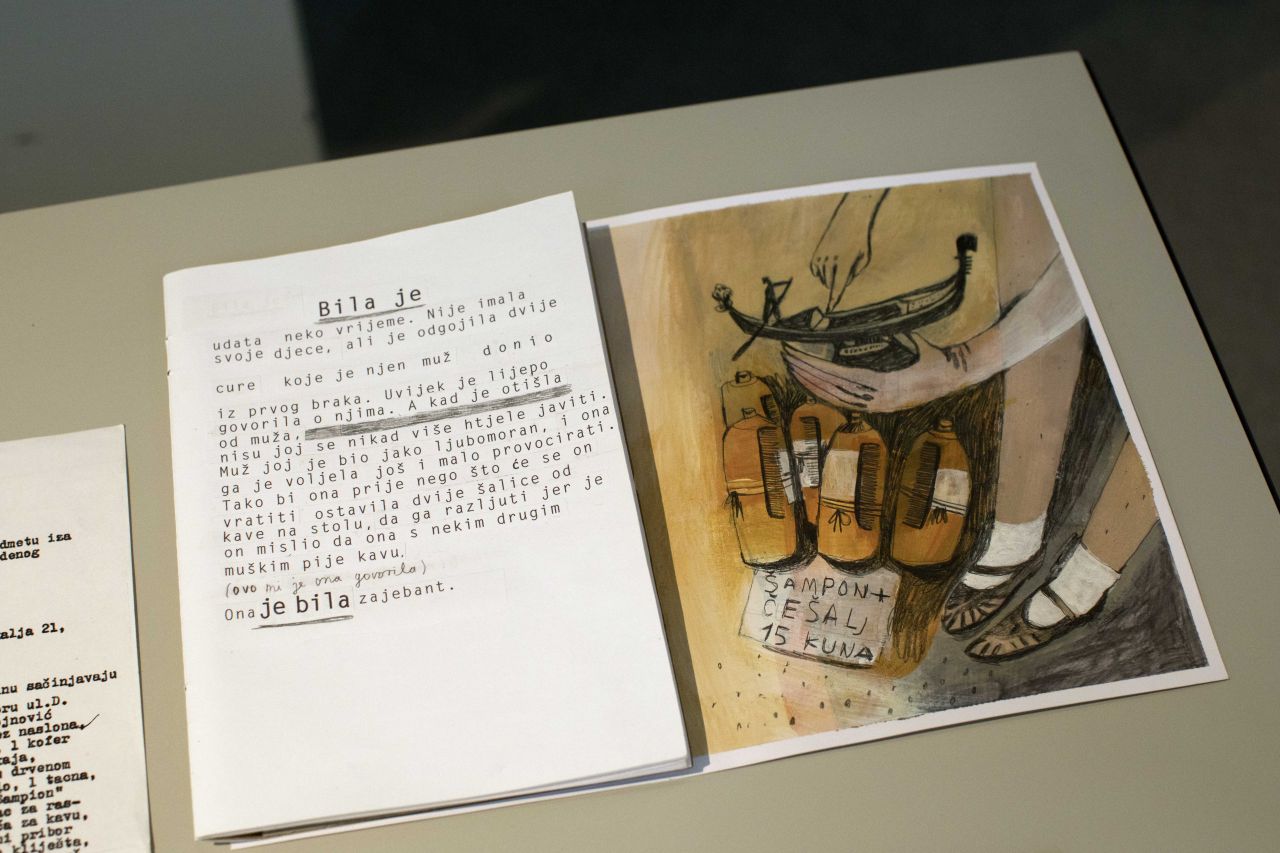 Bila je
udata neko vrijeme. Nije imala
svoje djece, ali je odgojila dvije
cure koje je njen muž donio
iz prvog braka. Uvijek je lijepo
govorila o njima. A kad je otišla
od muža,
nisu joj se nikad više htjele javiti.
Muž joj je bio jako ljubomoran, i ona
ga je voljela još i malo provocirati.
Tako bi ona prije nego što će se on
vratiti ostavila dvije šalice od
kave na stolu, da ga razljuti jer je
on mislio da ona s nekim drugim
muškim pije kavu.
(ovo mi je ona govorila)
Ona je bila zajebant.
ŠAMPON+
ČEŠALJ
15 KUNA
dmetu iza
denog
alja 21,
nu sačinjavaju
oru ul.D.
ojnović
ez naslona,
, 1 kofer
taja,
drvenom
lo, 1 tacna,
šampion"
ac za ras-
ča za kavu,
ni pribor
kliješta,